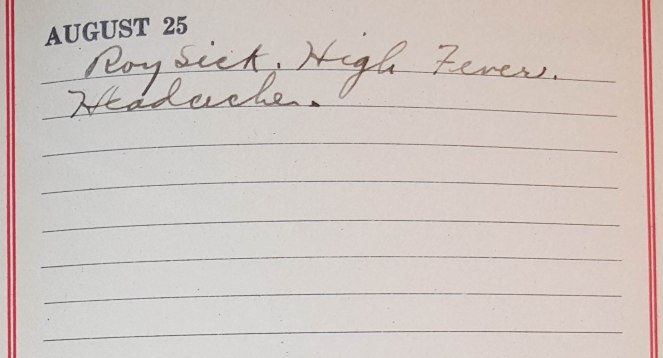 AUGUST 25
Roy Sick. High Fever.
Headache.